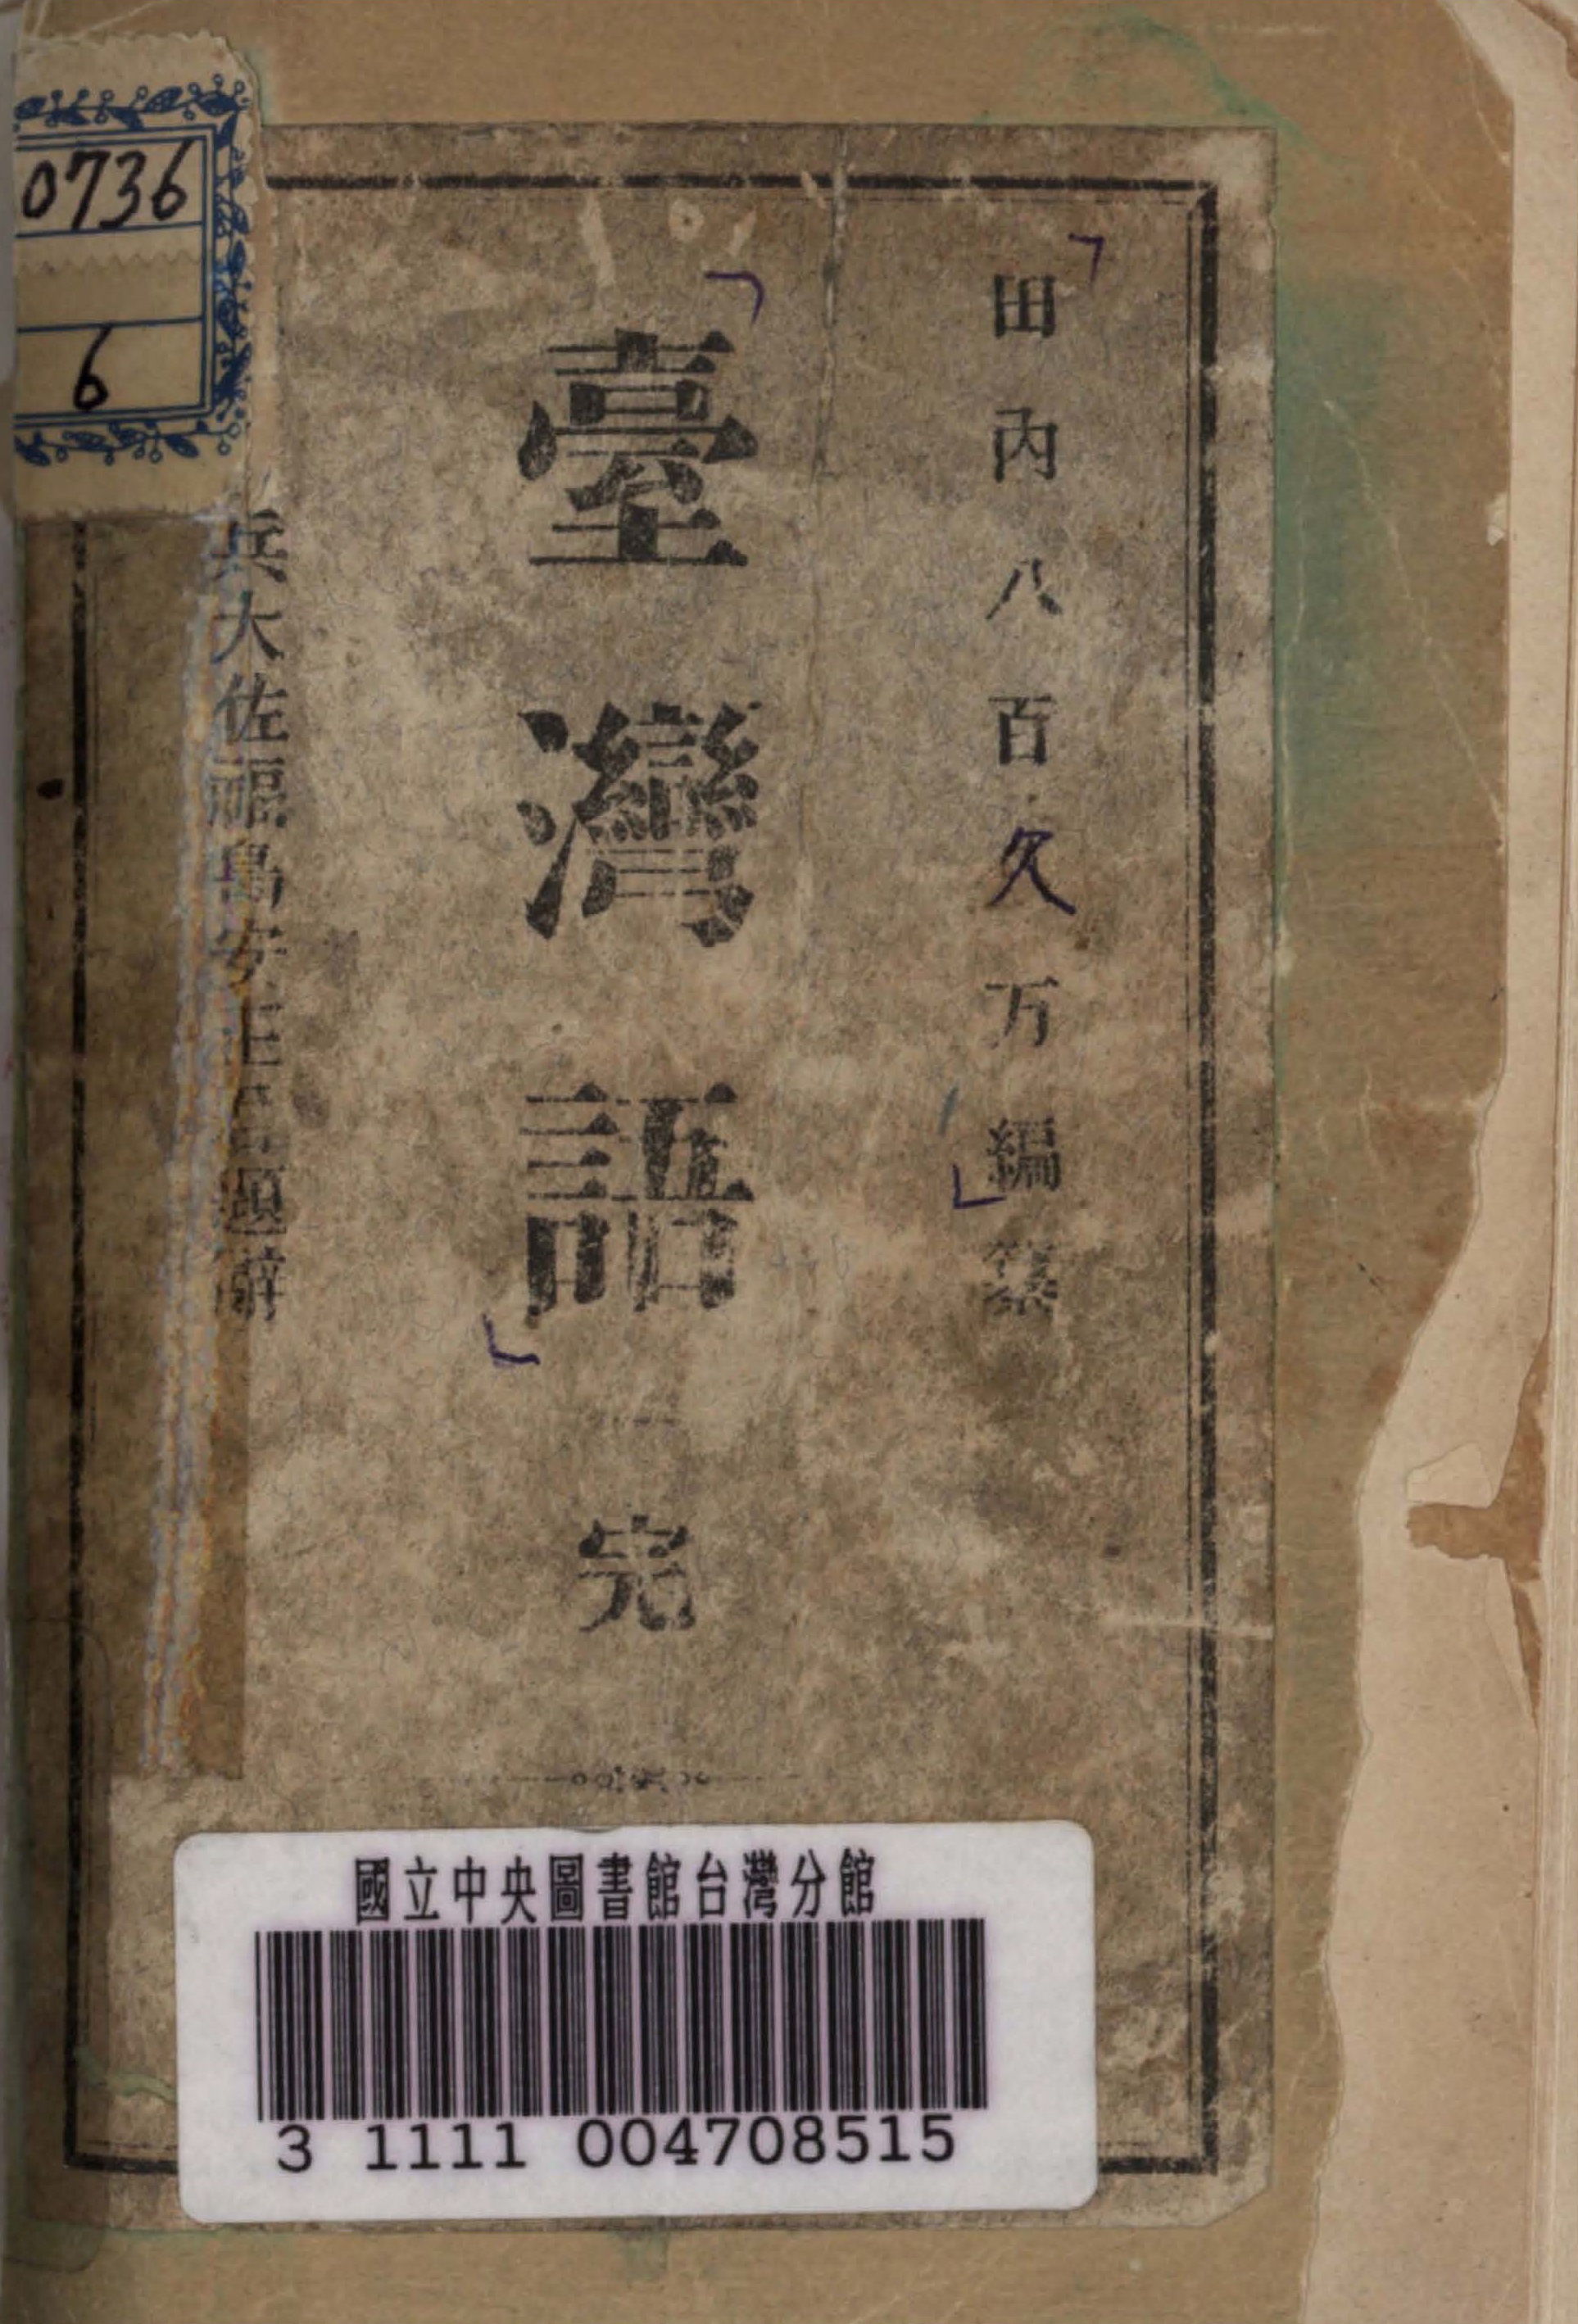 田內八百久万編纂
臺灣語 完
兵大佐福島安正君題辭
0736
6
國立中央圖書館台灣分館
3 1111 004708515